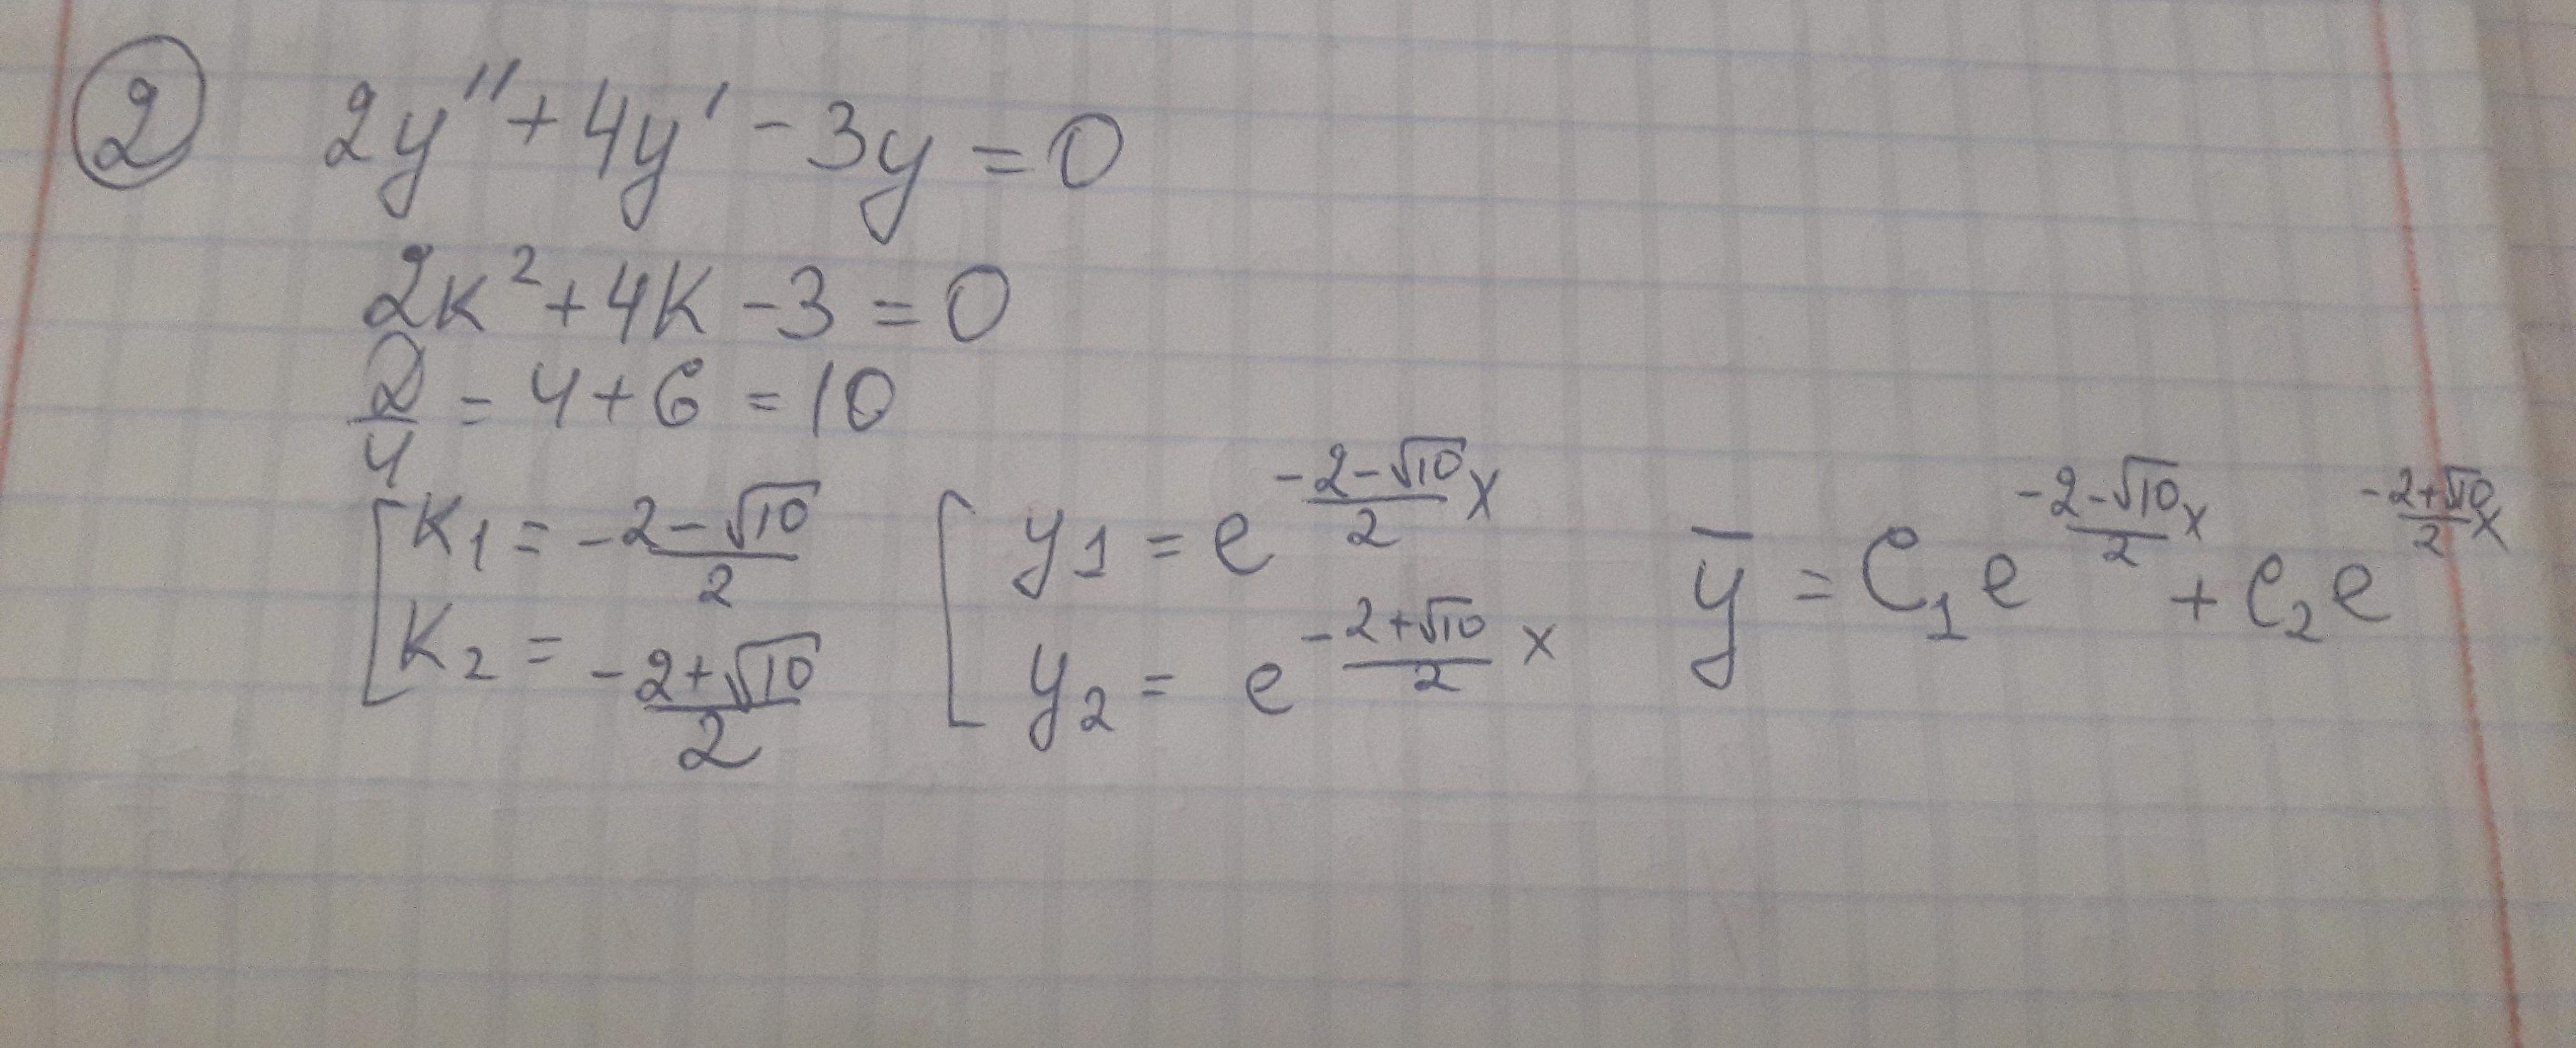 ② 2y'' + 4y' - 3y = 0
2k² + 4k - 3 = 0
D/4 = 4 + 6 = 10
[ k₁ = (-2-√10)/2   [ y₁ = e^((-2-√10)/2 x)   ȳ = C₁e^((-2-√10)/2 x) + C₂e^((-2+√10)/2 x)
k₂ = (-2+√10)/2   y₂ = e^((-2+√10)/2 x)